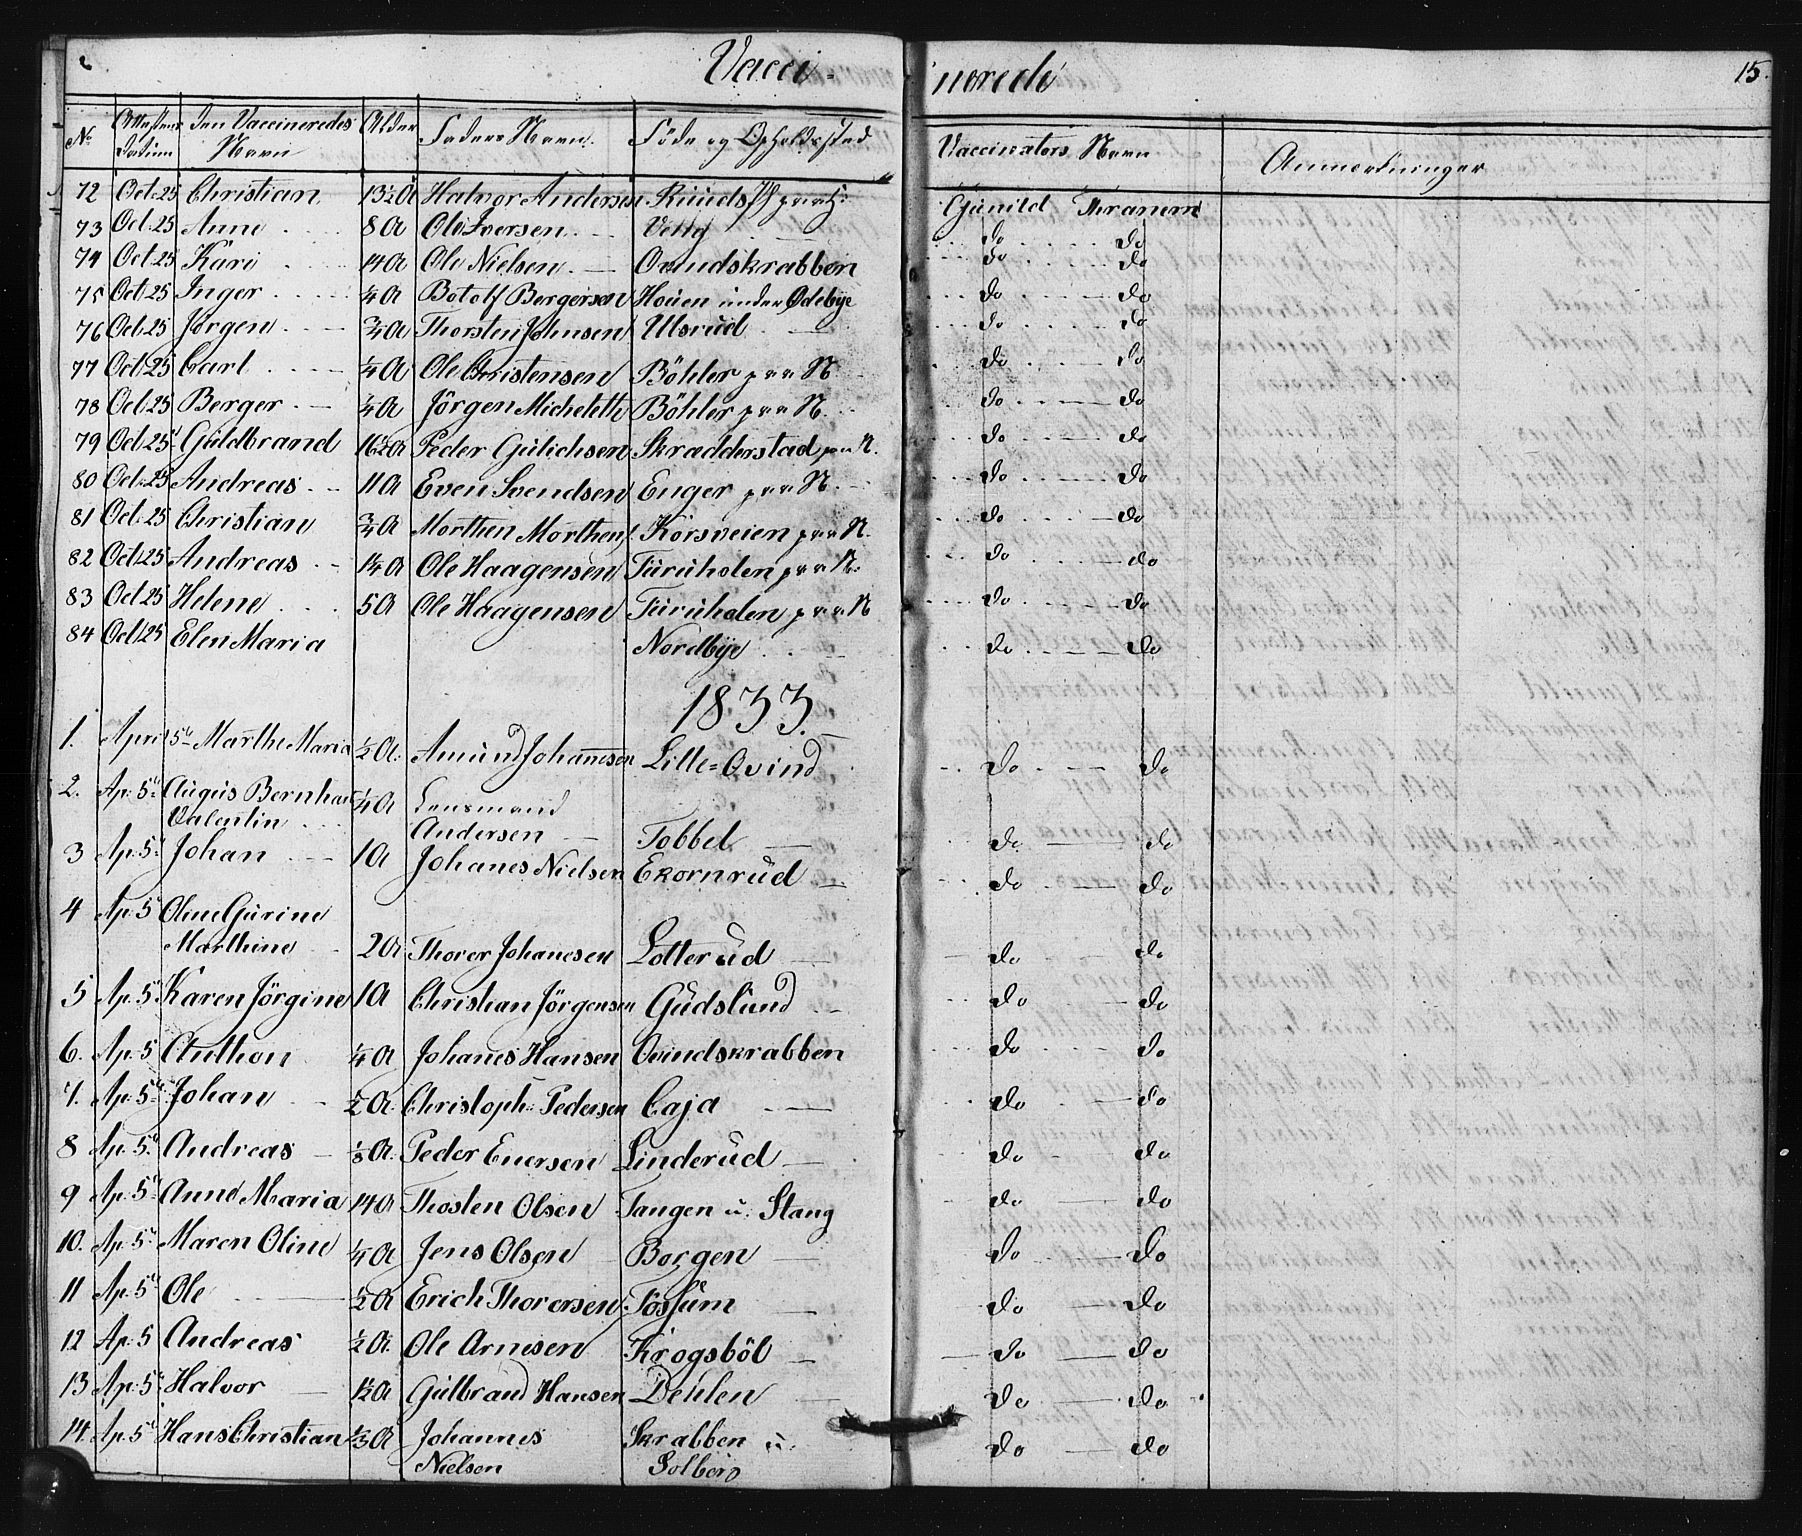 Vacci=
nerede
15.
No Attestens Datum Den Vaccineredes Navn Alder Faders Navn. Föde og Opholdssted Vaccinators Navn Anmerkninger
72 Oct. 25 Christian 13½ A Halvor Andersen Ruuds Gunild Thranem
73 Oct. 25 Anne 8 A Ole Iversen Do Do
74 Oct 25 Kari 14 A Ole Nielsen Ovindskrabben Do Do
75 Oct 25 Inger ¼ A Botolf Bergersen Houen under Odebye Do Do
76 Oct. 25 Jörgen ¾ A Thorsten Johnsen Ulsrud Do Do
77 Oct 25 Carl ¼ A Ole Christensen Böhler paa N. Do Do
78 Oct. 25 Berger ¼ A Jörgen Michelette Böhler paa N. Do Do
79 Oct. 25 Guldbrand 16½ A Peder Gulichsen Skradderstad paa N. Do Do
80 Oct. 25 Andreas 11 A Even Svendsen Enger paa N. Do Do
81 Oct. 25 Christian ¾ A Morthen Morthens Korsveien paa N. Do Do
82 Oct 25 Andreas 1¼ A Ole Haagensen Furuholen paa N. Do Do
83 Oct 25 Helene 5 A Ole Haagensen Furuholen paa N Do Do
84 Oct 25 Elen Maria Nordbye Do Do
1833.
1. April 5te Marthe Maria ½ A. Amund Johannesen Lille=Ovind Do Do
2. Ap. 5te Augus Bernhar ¼ A Lensmand
Valentin Andersen Tobbel Do Do
3 Ap. 5te Johan 1 A Johanes Nielsen Ekornrud Do Do
4 Ap. 5te Oline Gurine
Marthine 2 A. Thorer Johanesen Lotterud Do Do
5 Ap. 5te Karen Jörgine 1 A Christian Jörgensen Gudslund Do Do
6. Ap. 5 Anthon ¼ A Johanes Hansen Ovindskrabben Do Do
7. Ap. 5te Johan ½ A Christoph: Pedersen Caja Do Do
8 Ap. 5te Andreas ⅛ A. Peder Enersen Linderud Do Do
9 Ap. 5te Anne Maria 14 A Thosten Olsen Tangen u. Stang Do Do
10. Ap. 5te Maren Oline ¼ A Jens Olsen Borgen Do Do
11 Ap. 5te Ole ½ A Erich Thorersen Fossum Do Do
12 Ap. 5 Andreas ½ A. Ole Arnesen Krogsböl Do Do
13 Ap. 5te Halvor 1½ A Gulbrand Hansen Dehlen Do Do
14. Ap. 5te Hans Christian ⅔ A Johannes Skrabben u. Do Do
Nielsen Solberg